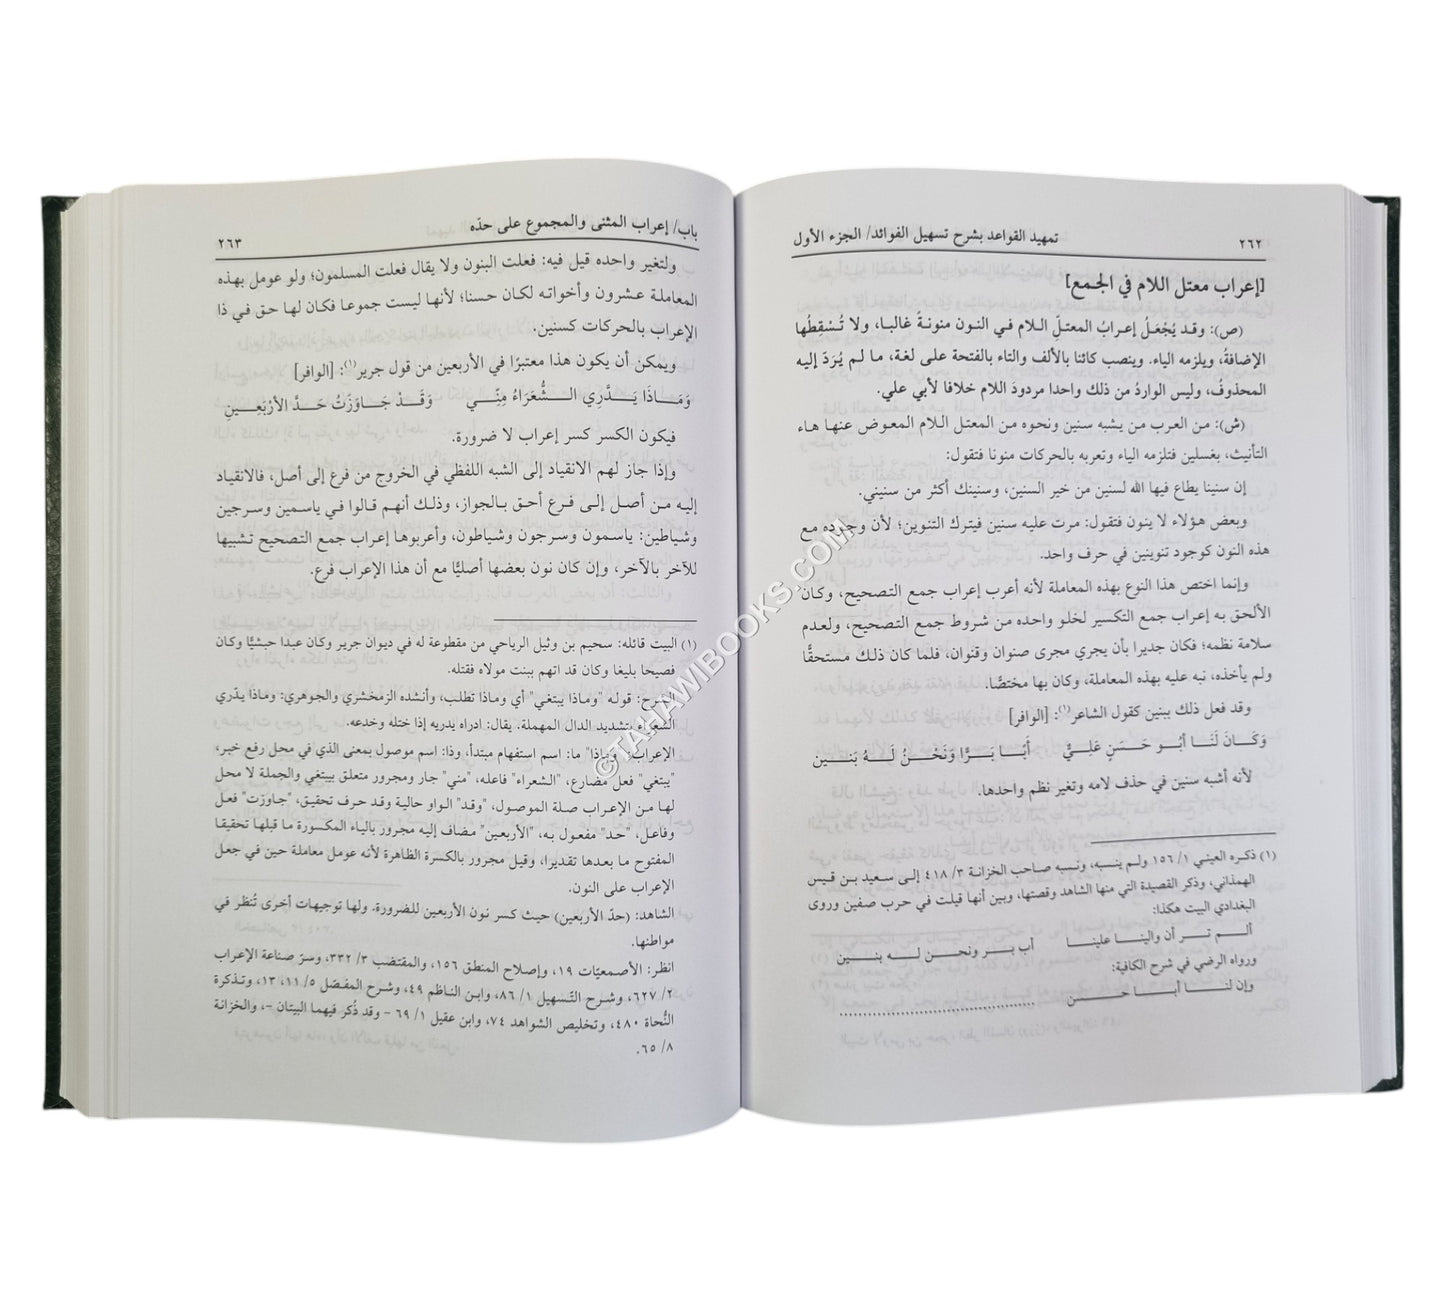 ٢٦٢
تمهيد القواعد بشرح تسهيل الفوائد/ الجزء الأول
[إعراب معتل اللام في الجمع]
(ص): وقد يُجْعَلُ إعرابُ المعتلّ اللام في النون منونةً غالبا، ولا تُسْقِطُها
الإضافةُ، ويلزمه الياء. وينصب كائنا بالألف والتاء بالفتحة على لغة، ما لم يُرَدّ إليه
المحذوفُ، وليس الواردُ من ذلك واحدا مردودَ اللام خلافا لأبي علي.
(ش): من العرب من يشبه سنين ونحوه من المعتل اللام المعوض عنها هاء
التأنيث، بغسلين فتلزمه الياء ونعربه بالحركات منونا فتقول:
إن سنينا يطاع فيها الله لسنين من خير السنين، وسنينك أكثر من سنيني.
وبعض هؤلاء لا ينون فتقول: مرت عليه سنين فيترك التنوين؛ لأن وجوده مع
هذه النون كوجود تنوينين في حرف واحد.
وإنما اختص هذا النوع بهذه المعاملة لأنه أعرب إعراب جمع التصحيح، وكان
الألحق به إعراب جمع التكسير لخلو واحده من شروط جمع التصحيح، ولعدم
سلامة نظمه؛ فكان جديرا بأن يجري مجرى صنوان وقنوان، فلما كان ذلك مستحقًّا
ولم يأخذه، نبه عليه بهذه المعاملة، وكان بها مختصًّا.
وقد فعل ذلك ببنين كقول الشاعر(١): [الوافر]
وَكَـانَ لَنَـا أَبُـو حَسَنٍ عَلِـيٌّ أَبًـا بَـرًّا وَنَحْـنُ لَـهُ بَنـيـن
لأنه أشبه سنين في حذف لامه وتغير نظم واحدها.
(١) ذكره العيني ١/ ١٥٦ ولم ينسبه، ونسبه صاحب الخزانة ٣/ ٤١٨ إلى سعيد بن قيس
الهمذاني، وذكر القصيدة التي منها الشاهد وقصتها، وبين أنها قيلت في حرب صفين وروى
البغدادي البيت هكذا:
ألـم تـر أن والينـا علينـا أب بـر ونحـن لـه بنـيـن
ورواه الرضي في شرح الكافية:
وإن لنـا أبـا حـسـن ......................................
باب/ إعراب المثنى والمجموع على حدّه
٢٦٣
ولتغير واحده قيل فيه: فعلت البنون ولا يقال فعلت المسلمون؛ ولو عومل بهذه
المعاملة عشرون وأخواته لكان حسنا؛ لأنها ليست جموعا فكان لها حق في ذا
الإعراب بالحركات كسنين.
ويمكن أن يكون هذا معتبرًا في الأربعين من قول جرير(١): [الوافر]
وَمَـاذَا يَـدَّرِي الـشُّعَرَاءُ مِنِّـي وَقَـدْ جَـاوَزَتُ حَـدَّ الأَرْبَعِـينِ
فيكون الكسر كسر إعراب لا ضرورة.
وإذا جاز لهم الانقياد إلى الشبه اللفظي في الخروج من فرع إلى أصل، فالانقياد
إليه من أصل إلى فرع أحق بالجواز، وذلك أنهم قالوا في ياسمين وسرجين
وشياطين: ياسمون وسرجون وشياطون، وأعربوها إعراب جمع التصحيح تشبيها
للآخر بالآخر، وإن كان نون بعضها أصليًّا مع أن هذا الإعراب فرع.
(١) البيت قائله: سحيم بن وثيل الرياحي من مقطوعة له في ديوان جرير وكان عبدا حبشيًّا وكان
فصيحا بليغا وكان قد اتهم ببنت مولاه فقتله.
الشرح: قوله "وماذا يبتغي" أي وماذا تطلب، وأنشده الزمخشري والجوهري: وماذا يدّري
الشعراء بتشديد الدال المهملة. يقال: ادراه يدريه إذا ختله وخدعه.
الإعراب: "وماذا" ما: اسم استفهام مبتدأ، وذا: اسم موصول بمعنى الذي في محل رفع خبر،
"يبتغي" فعل مضارع، "الشعراء" فاعله، "مني" جار ومجرور متعلق بيبتغي والجملة لا محل
لها من الإعراب صلة الموصول، "وقد" الواو حالية وقد حرف تحقيق، "جاوزت" فعل
وفاعل، "حد" مفعول به، "الأربعين" مضاف إليه مجرور بالياء المكسورة ما قبلها تحقيقا
المفتوح ما بعدها تقديرا، وقيل مجرور بالكسرة الظاهرة لأنه عومل معاملة حين في جعل
الإعراب على النون.
الشاهد: (حدّ الأربعين) حيث كسر نون الأربعين للضرورة. ولها توجيهات أخرى تُنظر في
مواطنها.
انظر: الأصمعيّات ١٩، وإصلاح المنطق ١٥٦، والمقتضب ٣/ ٣٣٢، وسرّ صناعة الإعراب
٢/ ٦٢٧، وشرح التّسهيل ١/ ٨٦، وابن الناظم ٤٩، وشرح المفصّل ٥/ ١١، ١٣، وتذكرة
النُّحاة ٤٨٠، وتخليص الشواهد ٧٤، وابن عقيل ١/ ٦٩ - وقد ذُكر فيهما البيتان -، والخزانة
٨/ ٦٥.
©TAHAWIBOOKS.COM